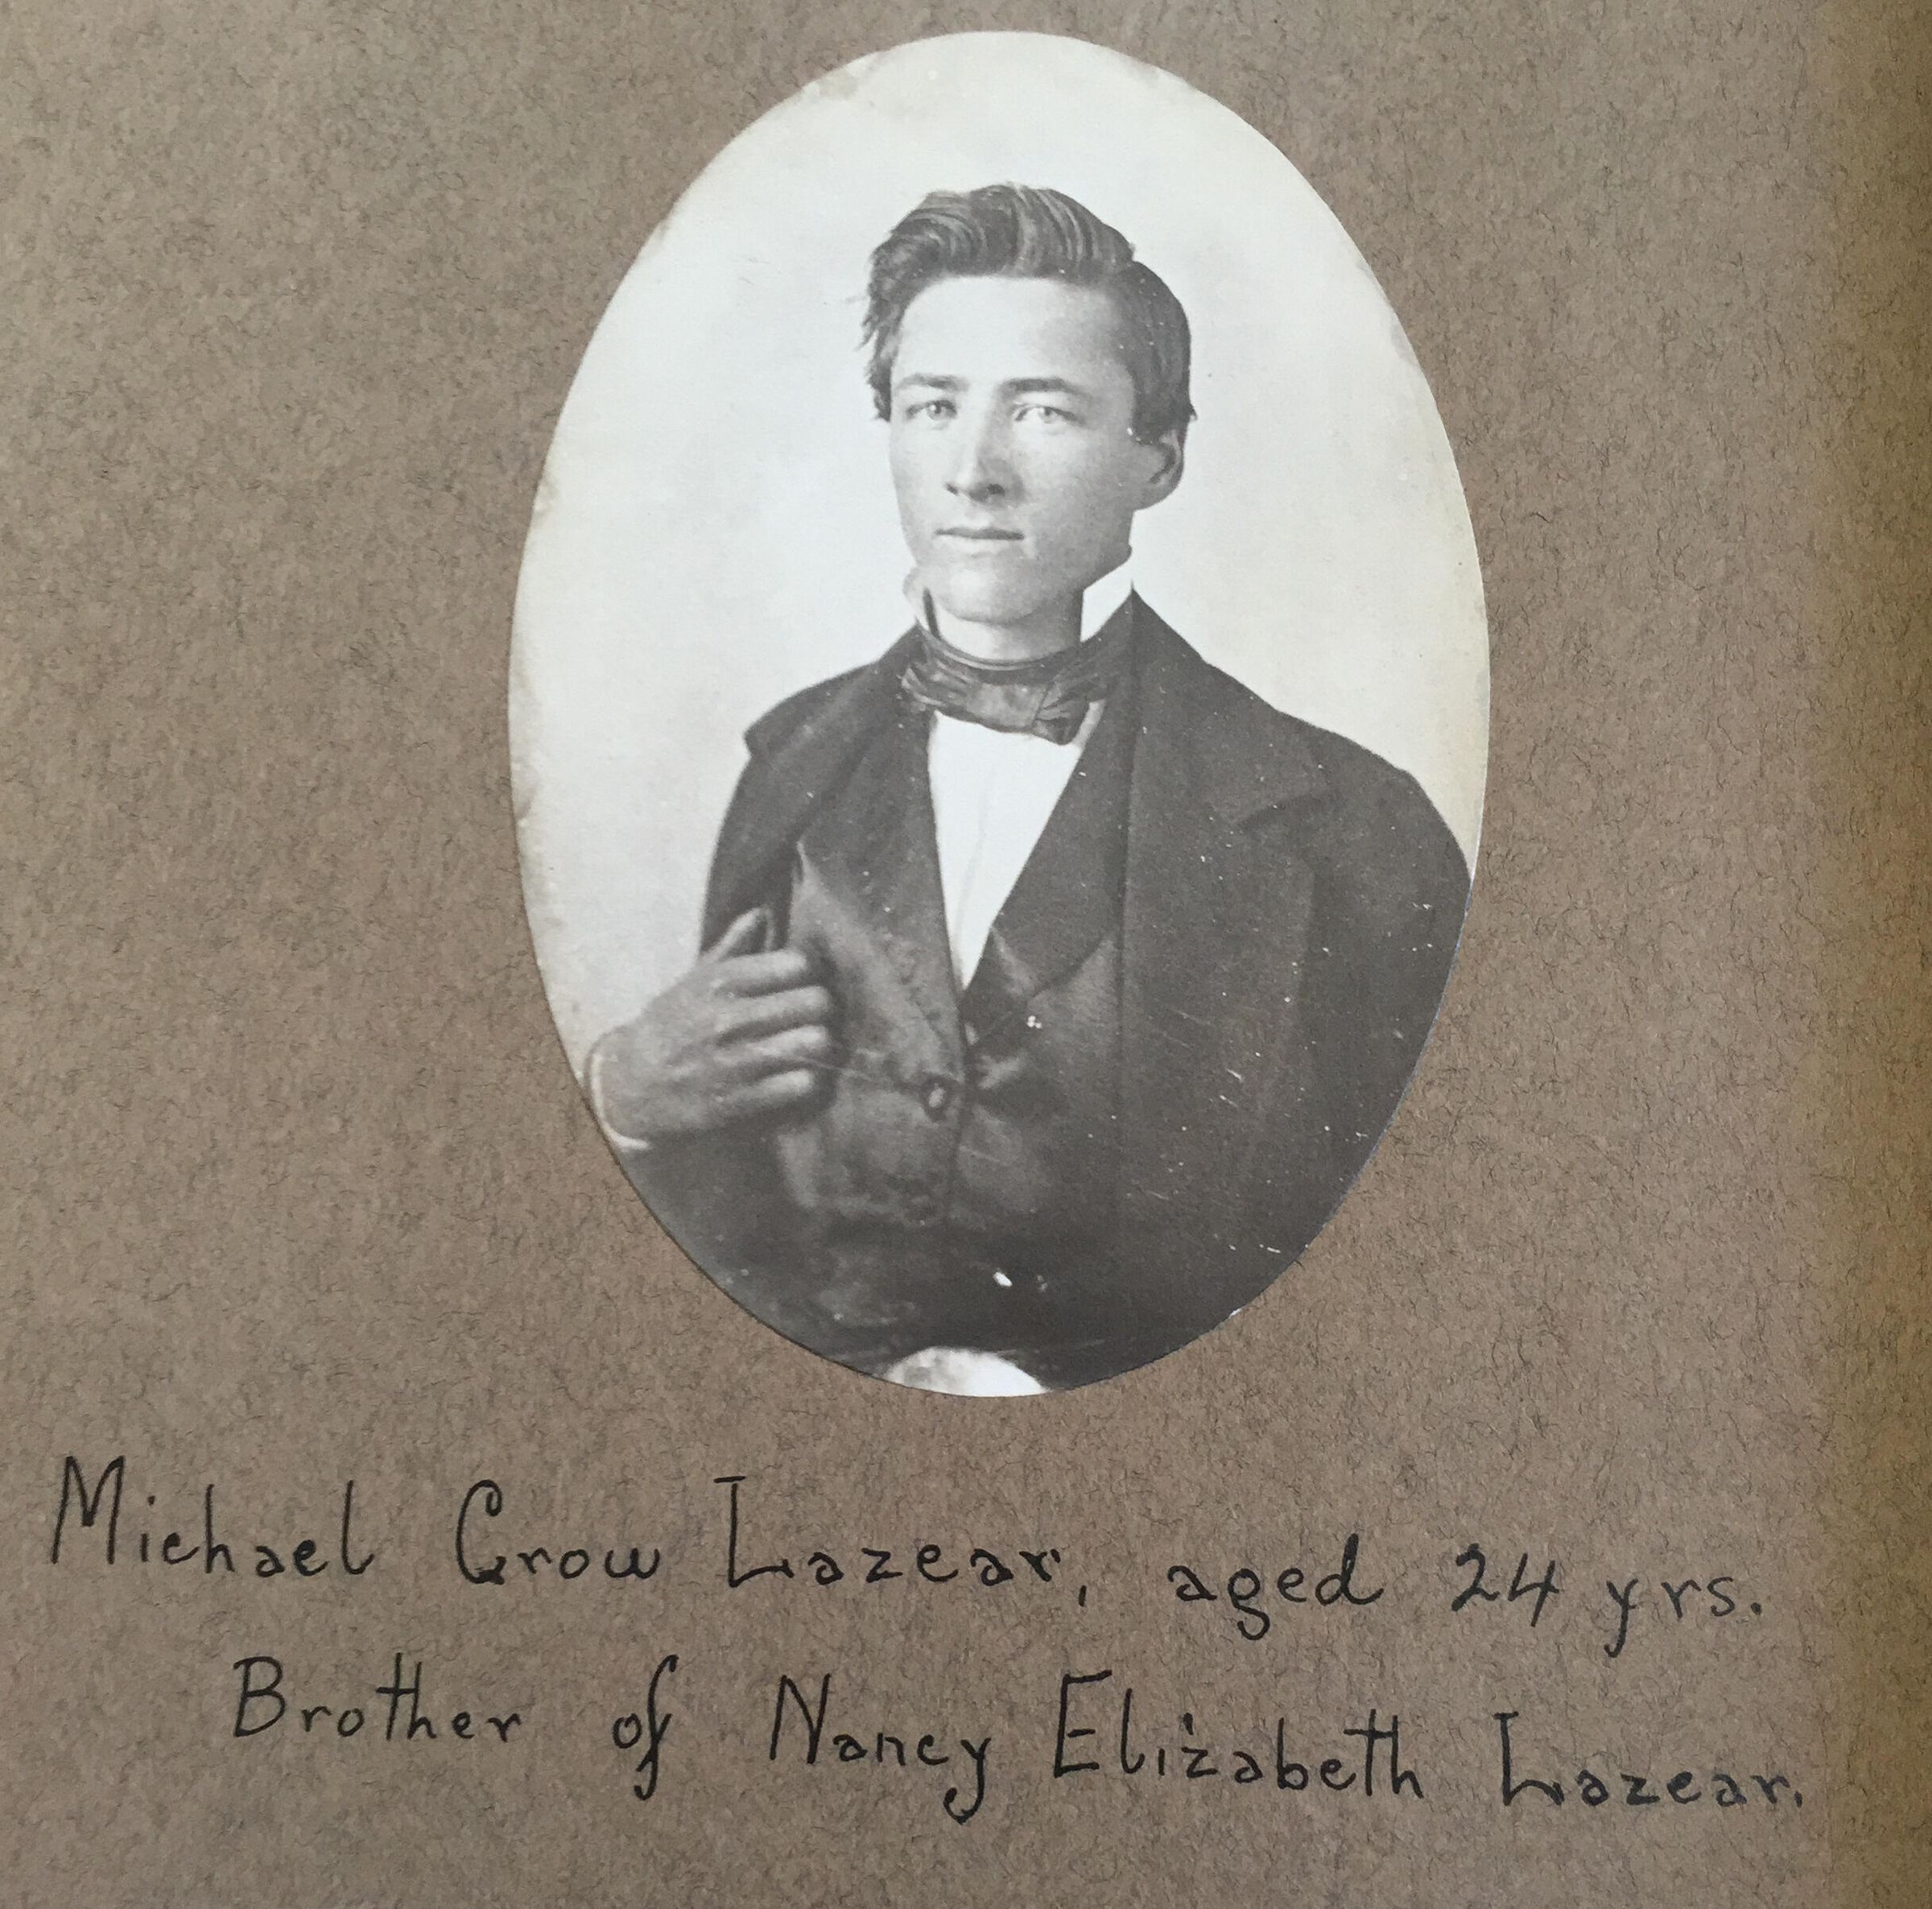 Michael Crow Lazear, aged 24 yrs.
Brother of Nancy Elizabeth Lazear.